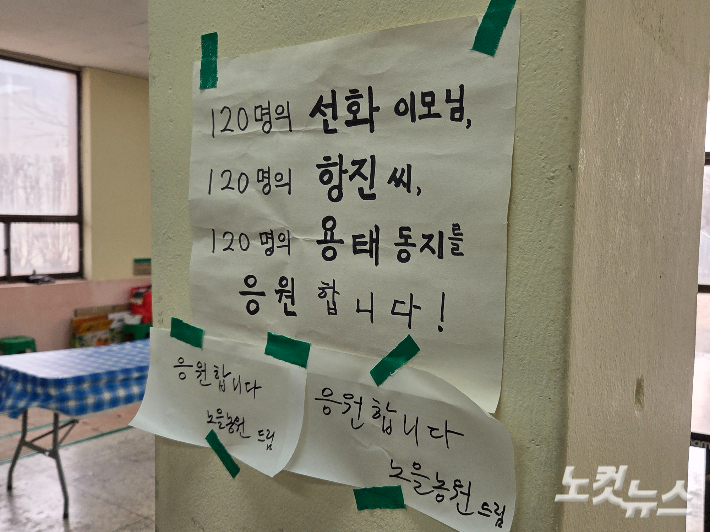 120명의 선화 이모님,
120명의 항진 씨,
120명의 용태 동지를
응원합니다!
응원합니다
노을농원 드림
응원합니다
노을농원 드림
노컷뉴스